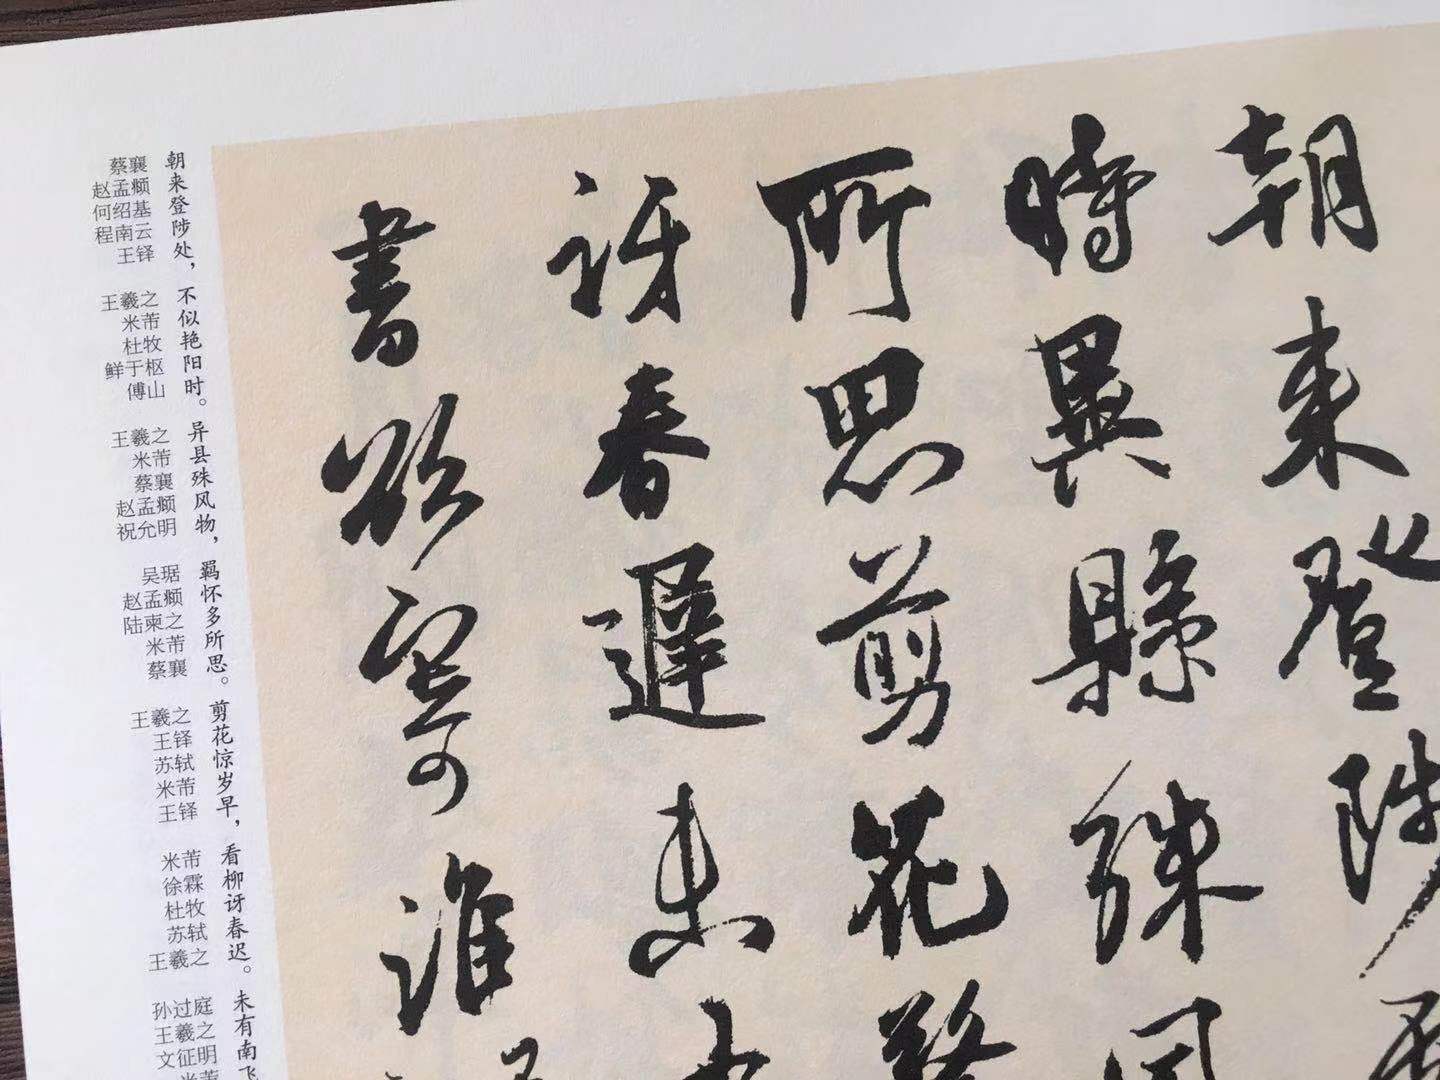 朝来登陟不
時異縣殊風
所思剪花驚
訝春遲未有
書欲寄誰
朝来登陟处，不似艳阳时。异县殊风物，羁怀多所思。剪花惊岁早，看柳讶春迟。未有南飞
蔡襄
赵孟頫
何绍基
程南云
王铎
王羲之
米芾
杜牧
鲜于枢
傅山
王羲之
米芾
蔡襄
赵孟頫
祝允明
吴琚
赵孟頫
陆柬之
米芾
蔡襄
王羲之
王铎
苏轼
米芾
王铎
米芾
徐霖
杜牧
苏轼
王羲之
孙过庭
王羲之
文征明
米芾